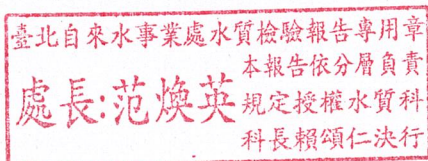 臺北自來水事業處水質檢驗報告專用章
處長:范煥英
本報告依分層負責
規定授權水質科
科長賴頌仁決行